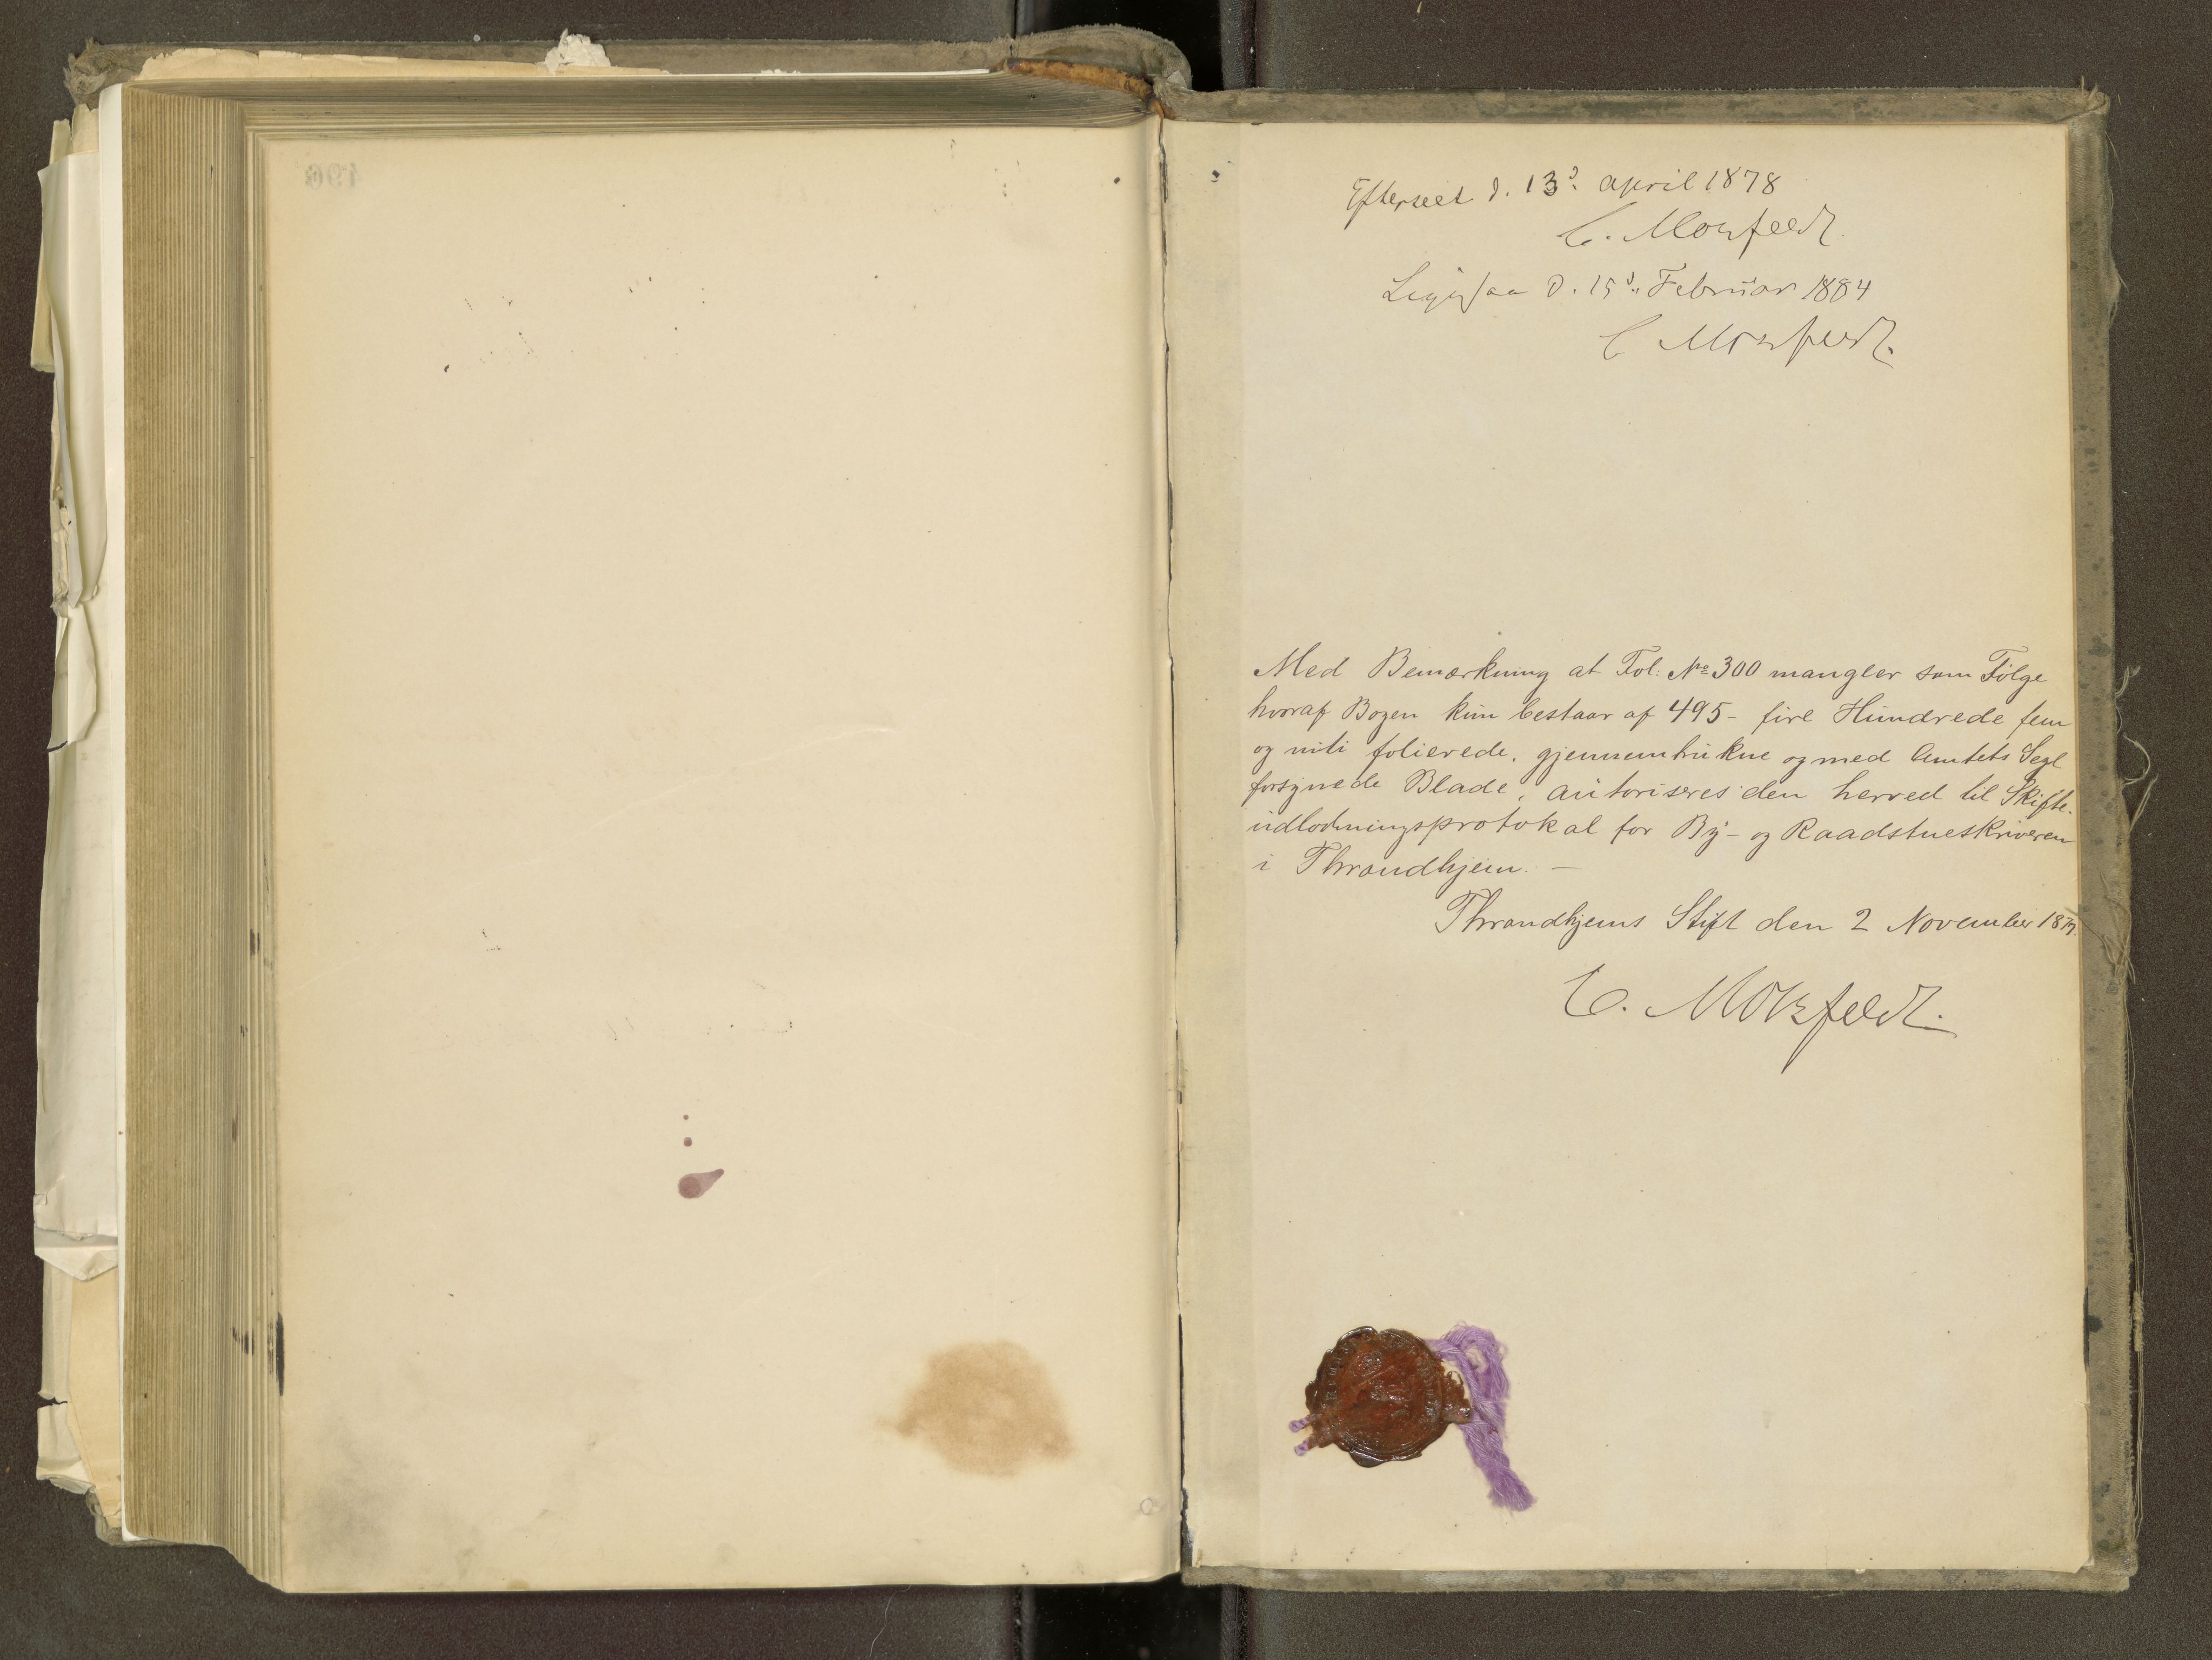 Efterseet d. 13d. april 1878
C. Motzfeldt.
Ligesaa d. 15d. Februar 1884
C Motzfeldt.
Med Bemærkning at Fol: No 300 mangler som Følge
hvoraf Bogen kun bestaar af 495 - fire Hundrede fem
og niti folierede, gjennemtrukne og med Amtets Segl
forsynede Blade, autoriseres den herved til Skifte-
udlodningsprotokol for By- og Raadstueskriveren
i Throndhjem. -
Throndhjems Stift den 2 November
C. Motzfeldt.
196